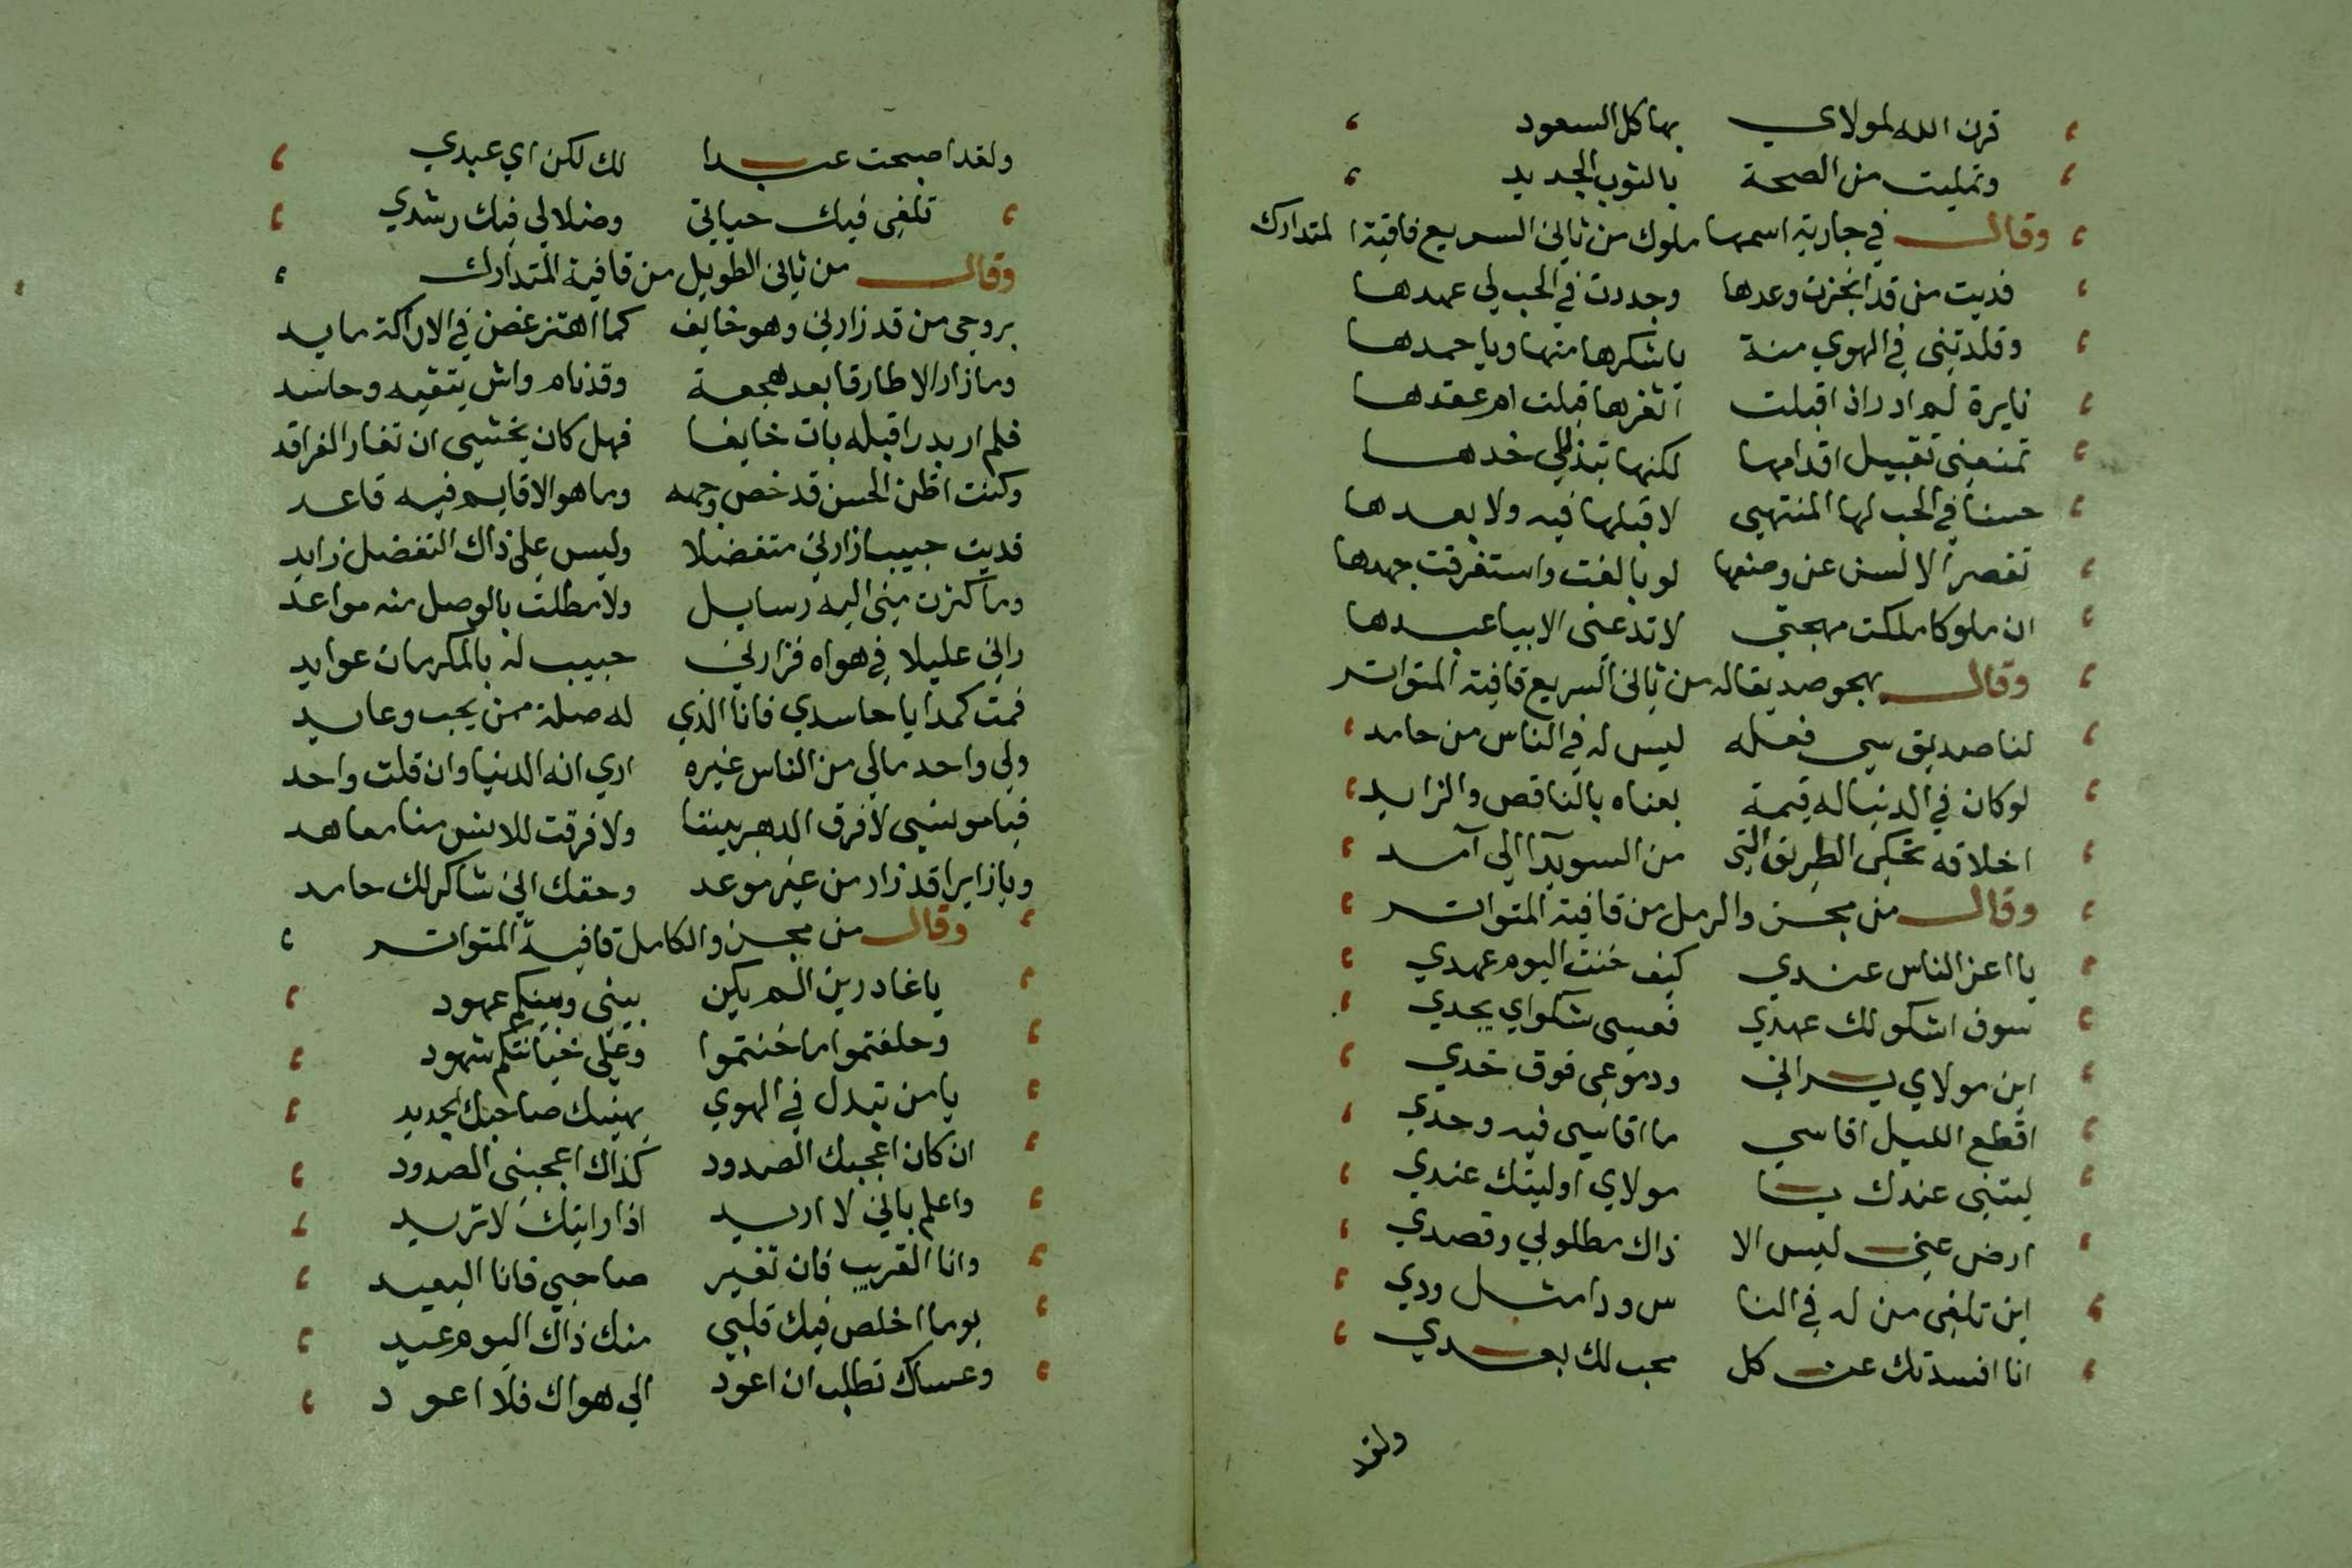 قرن الله لمولاي بها كل السعود
وتمليت من الصحة بالثوب الجديد
وقال في جارية اسمها ملوك من ثاني السريع قافية المتدارك
فديت من قد انجزت وعدها وجددت في الحب لي عهدها
وقلدتني في الهوي منة يا شكرها منها ويا حمدها
زايرة لم ادر اذ اقبلت اثغرها قبلت ام عقدها
تمنعني تقبيل اقدامها لكنها تبذل لي خدها
حسنا في الحب لها المنتهي لا قبلها فيه ولا بعدها
تقصر الالسن عن وصفها لو بالغت واستغرقت جهدها
ان ملوكا ملكت مهجتي لا تدعني الا بيا عبدها
وقال يهجو صديقا له من ثاني السريع قافية المتواتر
لنا صديق سي فعله ليس له في الناس من حامد
لو كان في الدنيا له قيمة بعناه بالناقص والزايد
اخلاقه تحكي الطريق التي من السويدآ الي آمد
وقال من مجزو الرمل من قافية المتواتر
يا اعز الناس عندي كيف خنت اليوم عهدي
سوف اشكو لك عهدي فعسي شكواي يجدي
اين مولاي يراني ودموعي فوق خدي
اقطع الليل اقاسي ما اقاسي فيه وحدي
ليتني عندك يا مولاي او ليتك عندي
ارض عني ليس الا ذاك مطلوبي وقصدي
اين تلقي من له في النا س ودا مثل ودي
انا افسدتك عن كل محب لك بعدي
ولقد
ولقد اصبحت عبدا لك لكن اي عبدي
تلفي فيك حياتي وضلالي فيك رشدي
وقال من ثاني الطويل من قافية المتدارك
بروحي من قد زارني وهو خايف كما اهتز غصن في الاراكة مايد
وما زار الا طارقا بعد هجعة وقد نام واش يتقيه وحاسد
فلم ار بدرا قبله بات خايفا فهل كان يخشي ان تغار الفراقد
وكنت اظن الحسن قد خص وجهه وما هو الا قايم فيه قاعد
فديت حبيبا زارني متفضلا وليس علي ذاك التفضل زايد
وما كثرت مني اليه رسايل ولا مطلت بالوصل منه مواعد
راني عليلا في هواه فزارني حبيب له بالمكرمات عوايد
فمت كمدا يا حاسدي فانا الذي له صلة ممن يحب وعايد
ولي واحد مالي من الناس غيره اري انه الدنيا وان قلت واحد
فيا مونسي لا فرق الدهر بيننا ولا فرقت للانس منا معاهد
ويا زايرا قد زار من غير موعد وحقك اني شاكر لك حامد
وقال من مجزو الكامل قافية المتواتر
يا غادرين الم يكن بيني وبينكم عهود
وحلفتموا ما خنتموا وعلي خيانتكم شهود
يا من تبدل في الهوي يهنيك صاحبك الجديد
ان كان اعجبك الصدود كذاك اعجبني الصدود
واعلم باني لا اريد اذا رايتك لا تريد
وانا القريب فان تغير صاحبي فانا البعيد
يوما اخلص فيك قلبي منك ذاك اليوم عيد
وعساك تطلب ان اعود الي هواك فلا اعود